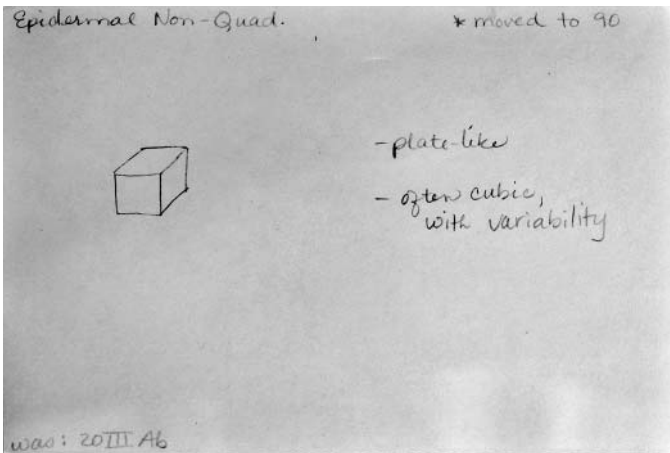 Epidermal Non-Quad.
* moved to 90
- plate-like
- often cubic,
with variability
was: 20 III Ab